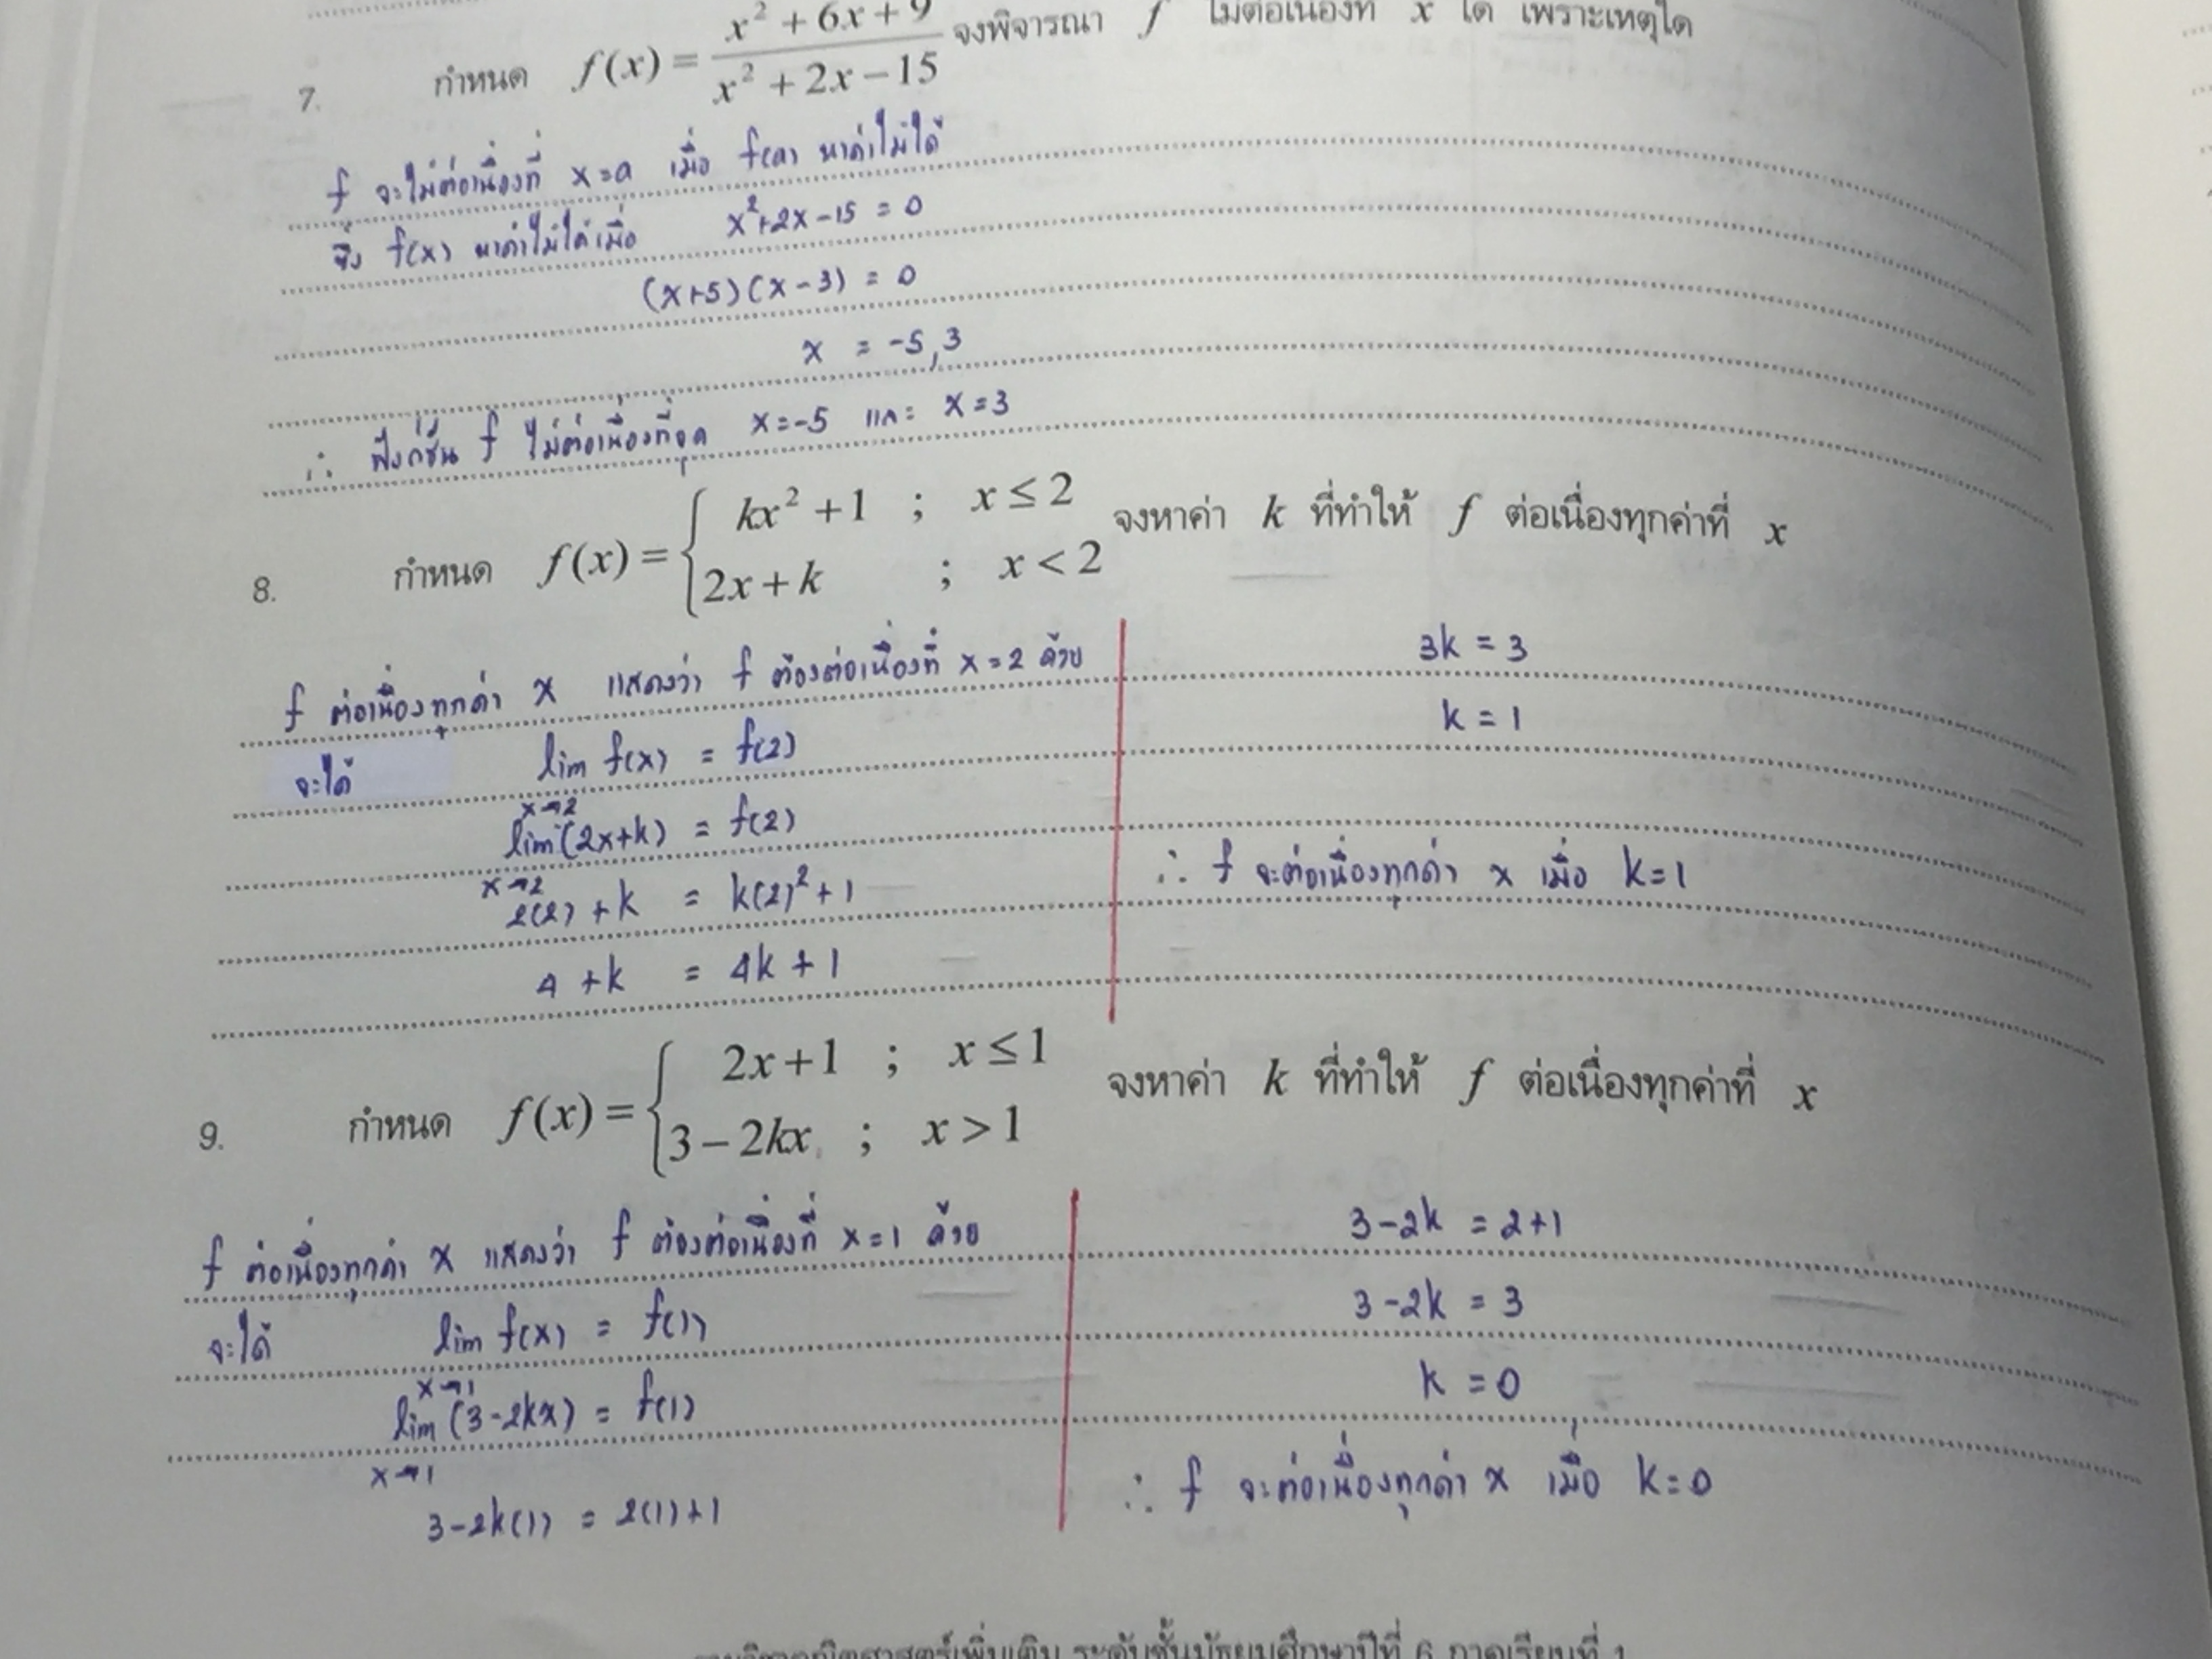 7. กำหนด f(x) = \frac{x² + 6x + 9}{x² + 2x − 15} จงพิจารณา f ไม่ต่อเนื่องที่ x ใด เพราะเหตุใด
f จะไม่ต่อเนื่องที่ x=a เมื่อ f(a) หาค่าไม่ได้
ซึ่ง f(x) หาค่าไม่ได้เมื่อ x²+2x−15 = 0
(x+5)(x−3) = 0
x = −5,3
∴ ฟังก์ชัน f ไม่ต่อเนื่องที่จุด x=−5 และ x=3
8. กำหนด f(x) = { kx² + 1 ; x ≤ 2
2x + k ; x < 2 จงหาค่า k ที่ทำให้ f ต่อเนื่องทุกค่าที่ x
f ต่อเนื่องทุกค่า x แสดงว่า f ต้องต่อเนื่องที่ x=2 ด้วย
จะได้ lim f(x) = f(2)
x→2
lim (2x+k) = f(2)
x→2
2(2) + k = k(2)²+1
4 + k = 4k + 1
3k = 3
k = 1
∴ f จะต่อเนื่องทุกค่า x เมื่อ k=1
9. กำหนด f(x) = { 2x + 1 ; x ≤ 1
3 − 2kx ; x > 1 จงหาค่า k ที่ทำให้ f ต่อเนื่องทุกค่าที่ x
f ต่อเนื่องทุกค่า x แสดงว่า f ต้องต่อเนื่องที่ x=1 ด้วย
จะได้ lim f(x) = f(1)
x→1
lim (3−2kx) = f(1)
x→1
3−2k(1) = 2(1)+1
3−2k = 2+1
3−2k = 3
k = 0
∴ f จะต่อเนื่องทุกค่า x เมื่อ k=0
คณิตศาสตร์เพิ่มเติม ระดับชั้นมัธยมศึกษาปีที่ 6 ภาคเรียนที่ 1